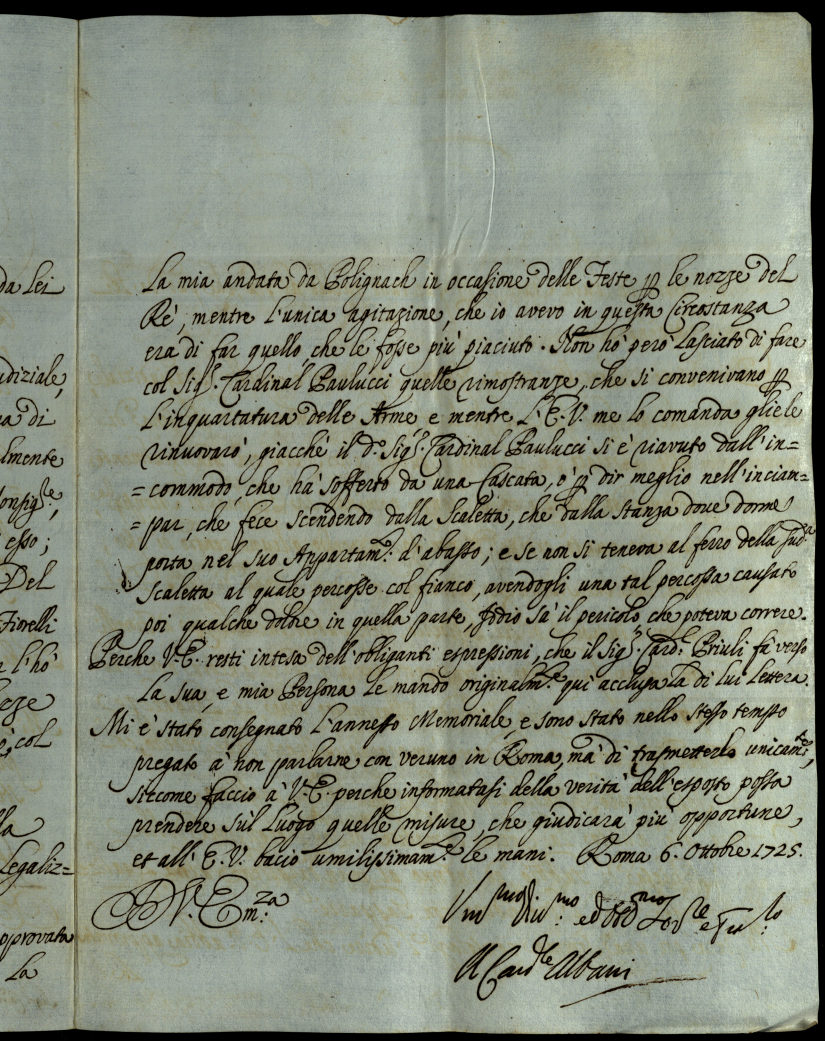 da Lei
udiziale,
va di
lmente
Monsig.le,
esso;
Del
Fiorelli
l'hò
col
lla
Legaliz=
pprovata
La
La mia andata da Polignach in occasione delle Feste p le nozze del
Rè, mentre l'unica agitazione, che io avevo in questa Circostanza
era di far quello, che le fosse più piaciuto. Non hò però Lasciato di fare
col Sig.r Cardinal Paulucci quelle rimostranze, che si convenivano p
L'inquartatura delle Arme e mentre L'E.V. me lo comanda gliele
rinuovarò, giacchè il d.o Sig.r Cardinal Paulucci si è riavuto dall'in=
=commodo, che hà sofferto da una Cascata, ò p dir meglio nell'inciam=
=par, che fece scendendo dalla Scaletta, che dalla stanza dove dorme
porta nel suo Appartam.to d'abasso; e se non si teneva al ferro della sud.a
Scaletta al quale percosse col fianco, avendogli una tal percossa causato
poi qualche dolore in quella parte, Iddio sà il pericolo che poteva correre.
Perche V.E. resti intesa dell'obliganti espressioni, che il Sig.r Card.l Priuli fà verso
La sua, e mia Persona Le mando originalm.te qui acclusa La di lui Lettera.
Mi è stato consegnato L'annesso Memoriale, e sono stato nello stesso tempo
pregato à non parlarne con veruno in Roma, mà di trasmetterlo unicam.te,
siccome faccio à V.E. perche informatasi della verità dell'esposto possa
prendere sul Luogo quelle misure, che giudicarà più opportune,
et all'E.V. bacio umilissimam.te le mani. Roma 6. Ottobre 1725.
D V. Em.za
A Card.le Albani